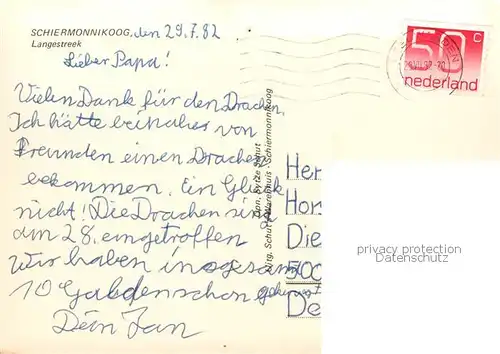 SCHIERMONNIKOOG, den 29.7.82
Langestreek
Lieber Papa!
Vielen Dank für den Drachen
Ich hätte beinahes von
Freunden einen Drachen
bekommen. Ein Glück
nicht! Die Drachen sind
am 28. eingetroffen
Wir haben insgesamt
10 Guldenschon gekriegt
Dein Jan
Uitg. Schut's Warenhuis - Schiermonnikoog
Dpn. Sytze Schut
50 c
nederland
Her
Hor
Die
500
De
privacy protection
Datenschutz